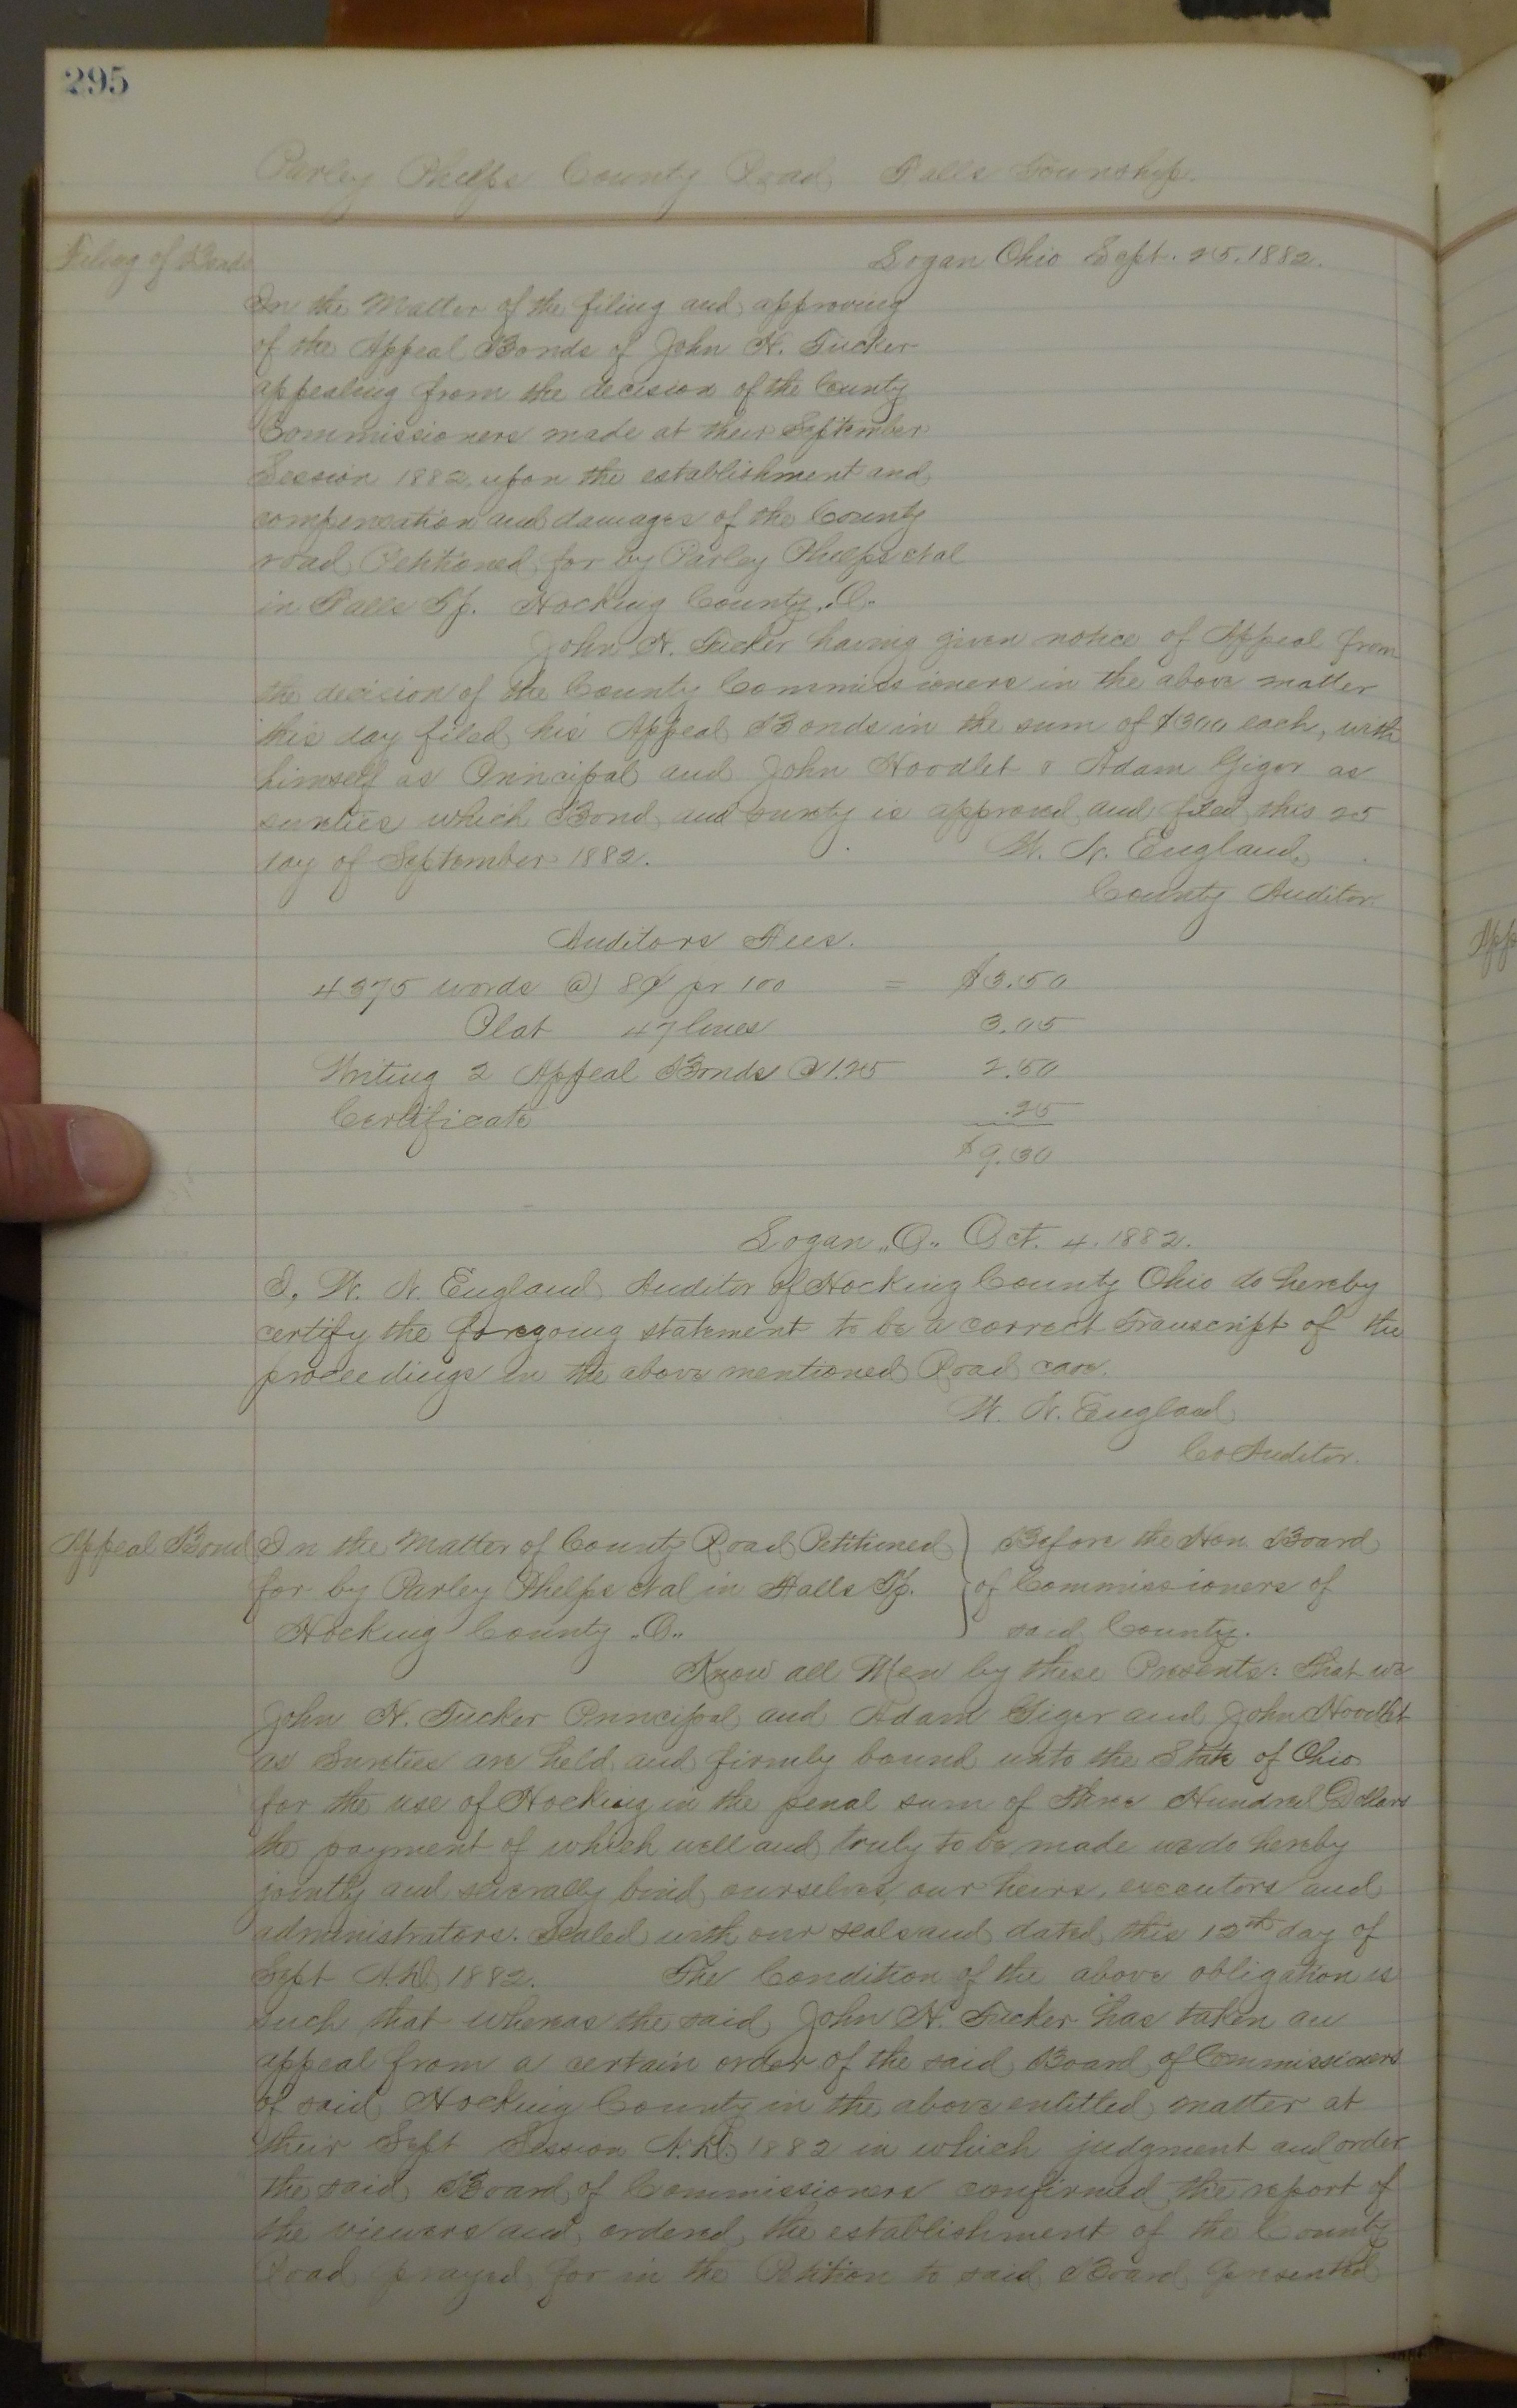 295
Parley Phelps County Road Falls Township.
Filing of Bonds
Logan Ohio Sept. 25. 1882.
In the Matter of the filing and approving
of the Appeal Bonds of John H. Tucker
appealing from the decision of the County
Commissioners made at their September
Session 1882 upon the establishment and
compensation and damages of the County
road Petitioned for by Parley Phelps et al
in Falls Tp. Hocking County „O„
John H. Tucker having given notice of Appeal from
the decision of the County Commissioners in the above matter
this day filed his Appeal Bonds in the sum of $300 each, with
himself as Principal and John Noodlet & Adam Giger as
sureties which Bond and surety is approved and filed this 25
day of September 1882.
W. N. England
County Auditor.
Auditors Fees.
4375 words @ 8¢ pr 100 = $3.50
Plat 47 lines 3.05
Writing 2 Appeal Bonds @ 1.25 2.50
Certificate .25
$9.30
Logan „O„ Oct. 4. 1882.
I, W. N. England Auditor of Hocking County Ohio do hereby
certify the foregoing statement to be a correct Transcript of the
proceedings in the above mentioned Road case.
W. N. England
Co Auditor.
Appeal Bond
In the Matter of County Road Petitioned } Before the Hon. Board
for by Parley Phelps et al in Falls Tp. } of Commissioners of
Hocking County „O„ } said County.
Know all Men by these Presents: That we
John H. Tucker Principal and Adam Giger and John Noodlet
as Sureties are held and firmly bound unto the State of Ohio
for the use of Hocking in the penal sum of Three Hundred Dollars
the payment of which well and truly to be made we do hereby
jointly and severally bind ourselves, our heirs, executors and
administrators. Sealed with our seals and dated this 12th day of
Sept A.D. 1882. The Condition of the above obligation is
such that whereas the said John H. Tucker has taken an
appeal from a certain order of the said Board of Commissioners
of said Hocking County in the above entitled matter at
their Sept Session A.D. 1882 in which judgment and order
the said Board of Commissioners confirmed the report of
the viewers and ordered the establishment of the County
Road prayed for in the Petition to said Board presented